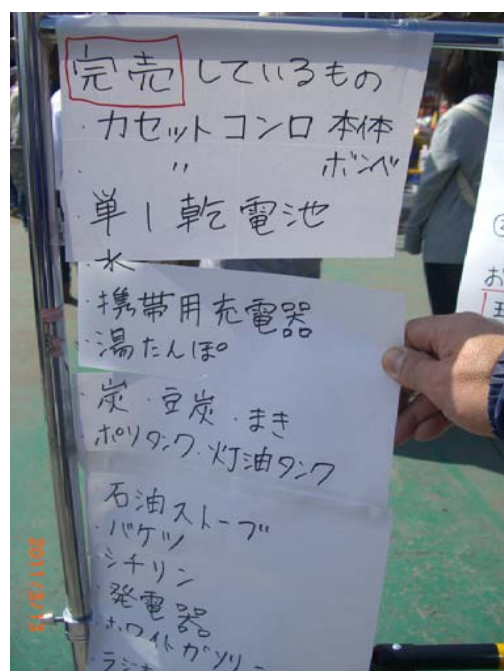 完売しているもの
・カセットコンロ 本体
・ 〃 ボンベ
・単1乾電池
・水
・携帯用充電器
・湯たんぽ
・炭・豆炭・まき
・ポリタンク・灯油タンク
石油ストーブ
・バケツ
・シチリン
・発電器
・ホワイトガソリン
お
2011/3/13